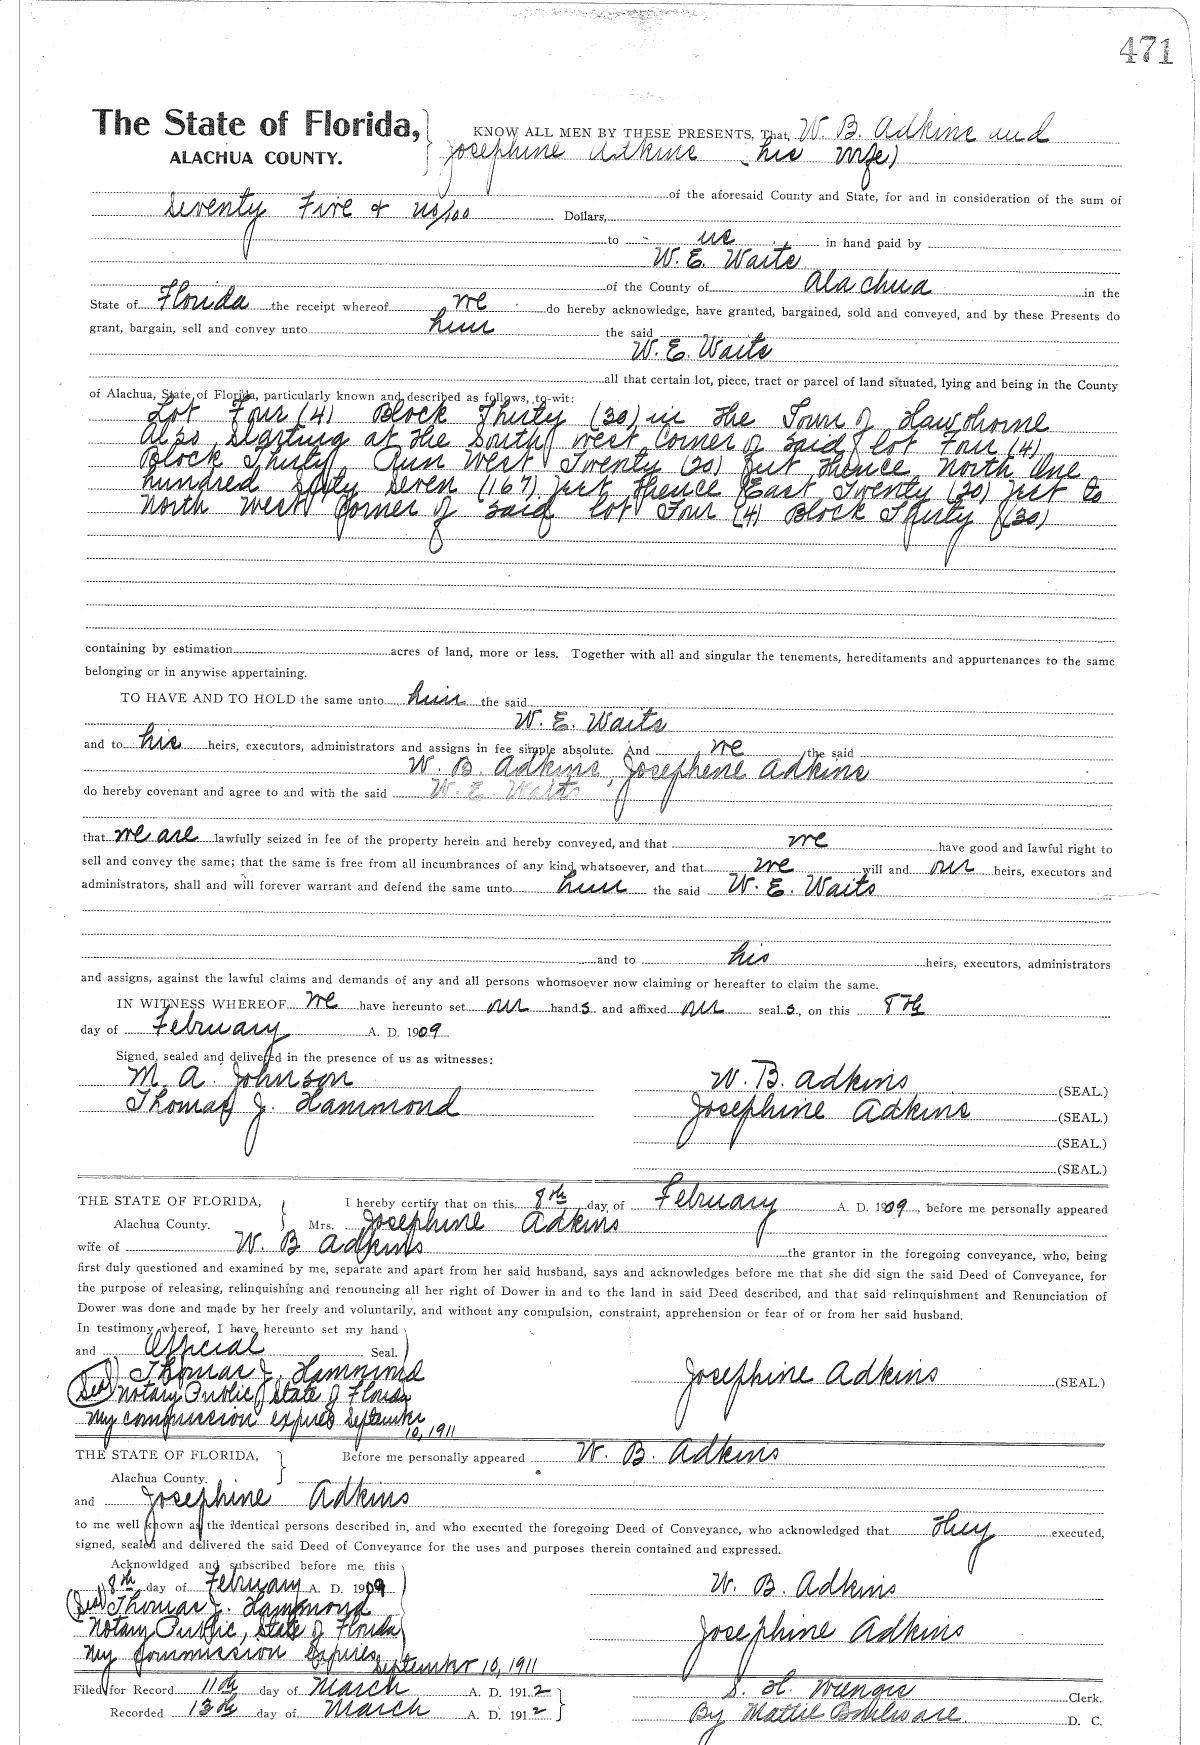 471
The State of Florida, KNOW ALL MEN BY THESE PRESENTS, That, W. B. Adkins and
ALACHUA COUNTY. Josephine Adkins (his wife)
of the aforesaid County and State, for and in consideration of the sum of
Seventy Five & no/100 Dollars,
to us in hand paid by
W. E. Waits
of the County of Alachua in the
State of Florida the receipt whereof we do hereby acknowledge, have granted, bargained, sold and conveyed, and by these Presents do
grant, bargain, sell and convey unto him the said
W. E. Waits
all that certain lot, piece, tract or parcel of land situated, lying and being in the County
of Alachua, State of Florida, particularly known and described as follows, to-wit:
Lot Four (4) Block Thirty (30) in the Town of Hawthorne
Also, Starting at the South west Corner of said lot Four (4)
Block Thirty Run West Twenty (20) feet thence North One
hundred Sixty Seven (167) feet thence East Twenty (20) feet to
North West Corner of said lot Four (4) Block Thirty (30)
containing by estimation acres of land, more or less. Together with all and singular the tenements, hereditaments and appurtenances to the same
belonging or in anywise appertaining.
TO HAVE AND TO HOLD the same unto him the said
W. E. Waits
and to his heirs, executors, administrators and assigns in fee simple absolute. And we the said
W. B. Adkins, Josephene Adkins
do hereby covenant and agree to and with the said W. E. Waits
that we are lawfully seized in fee of the property herein and hereby conveyed, and that we have good and lawful right to
sell and convey the same; that the same is free from all incumbrances of any kind whatsoever, and that we will and our heirs, executors and
administrators, shall and will forever warrant and defend the same unto him the said W. E. Waits
and to his heirs, executors, administrators
and assigns, against the lawful claims and demands of any and all persons whomsoever now claiming or hereafter to claim the same.
IN WITNESS WHEREOF we have hereunto set our hands and affixed our seal s, on this 8th
day of February A. D. 1909
Signed, sealed and delivered in the presence of us as witnesses:
M. A. Johnson W. B. Adkins (SEAL.)
Thomas J. Hammond Josephine Adkins (SEAL.)
(SEAL.)
(SEAL.)
THE STATE OF FLORIDA, I hereby certify that on this 8th day of February A. D. 1909, before me personally appeared
Alachua County. Mrs. Josephine Adkins
wife of W. B Adkins the grantor in the foregoing conveyance, who, being
first duly questioned and examined by me, separate and apart from her said husband, says and acknowledges before me that she did sign the said Deed of Conveyance, for
the purpose of releasing, relinquishing and renouncing all her right of Dower in and to the land in said Deed described, and that said relinquishment and Renunciation of
Dower was done and made by her freely and voluntarily, and without any compulsion, constraint, apprehension or fear of or from her said husband.
In testimony whereof, I have hereunto set my hand
and Official Seal.
Thomas J. Hammond Josephine Adkins (SEAL.)
(Seal) Notary Public State of Florida
My commission expires September
10, 1911
THE STATE OF FLORIDA, Before me personally appeared W. B. Adkins
Alachua County.
and Josephine Adkins
to me well known as the identical persons described in, and who executed the foregoing Deed of Conveyance, who acknowledged that they executed,
signed, sealed and delivered the said Deed of Conveyance for the uses and purposes therein contained and expressed.
Acknowldged and subscribed before me, this
8th day of February A. D. 1909 W. B. Adkins
(Seal) Thomas J. Hammond
Notary Public, State of Florida Josephine Adkins
My Commission Expires
September 10, 1911
Filed for Record 11th day of March A. D. 1912 S. H. Wienges Clerk.
Recorded 13th day of March A. D. 1912 By Mattie Bohlware D. C.